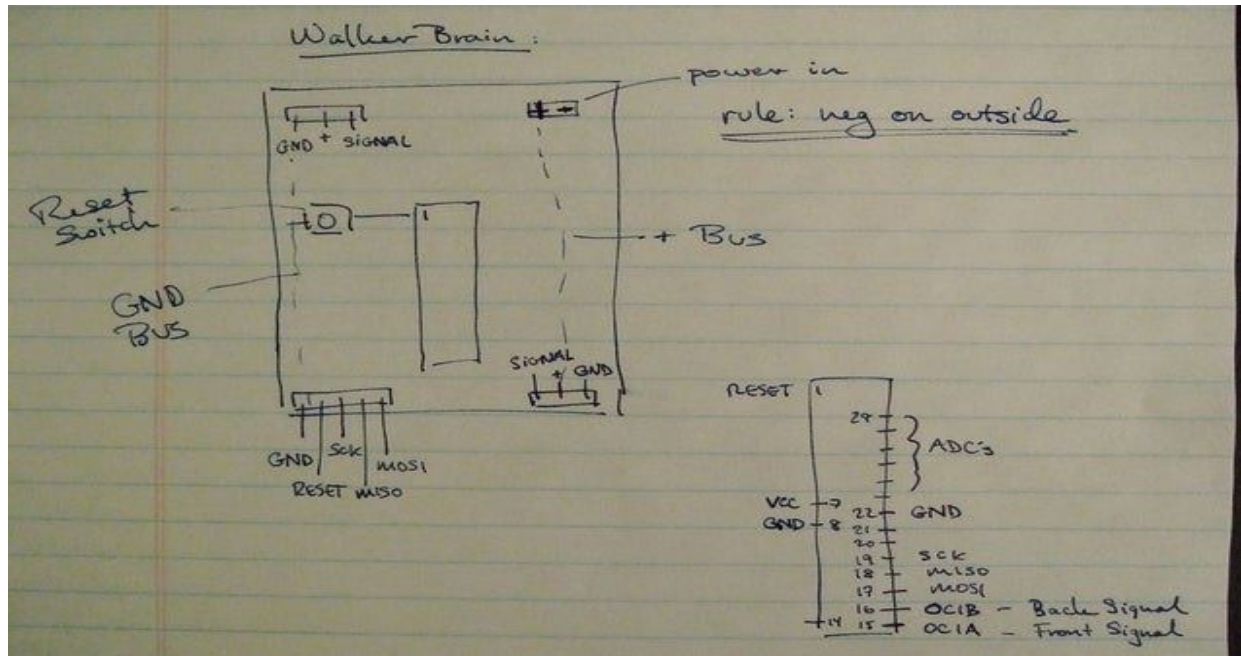 Walker Brain:
power in
rule: neg on outside
+ -
GND + SIGNAL
Reset
Switch
1
+ Bus
GND
BUS
SIGNAL
+ GND
GND SCK MOSI
RESET MISO
RESET 1
28
ADC's
VCC 7
22 GND
GND 8
21
20
19 SCK
18 MISO
17 MOSI
16 OC1B - Back Signal
14 15 OC1A - Front Signal